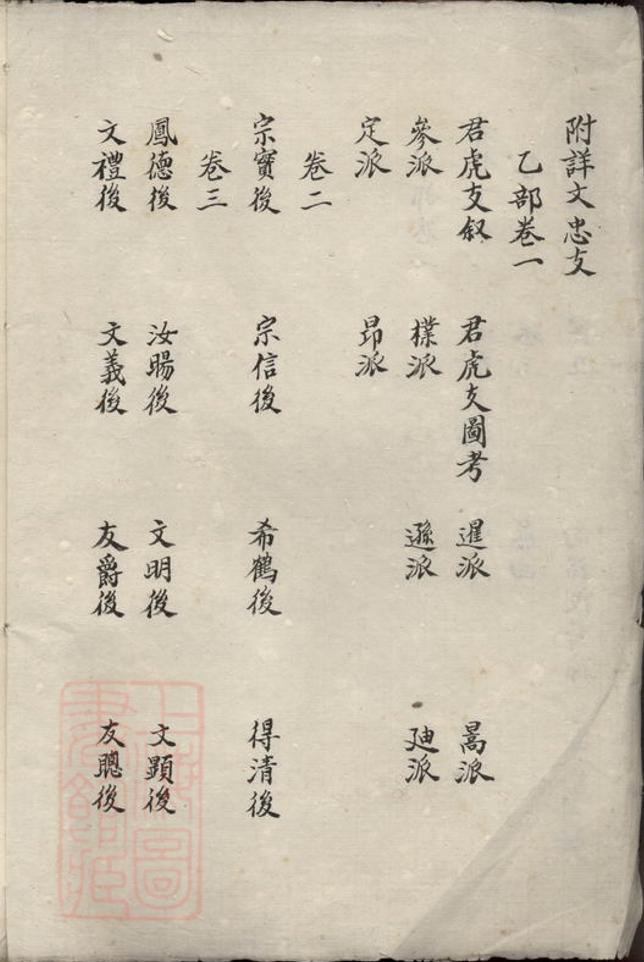 附詳文忠支
乙部卷一
君虎支叙 君虎支圖考 暹派 暠派
參派 檏派 遜派 廸派
定派 昂派
卷二
宗寶後 宗信後 希鶴後 得清後
卷三
鳳德後 汝暘後 文明後 文顯後
文禮後 文義後 友爵後 友聰後
上海圖
書館藏